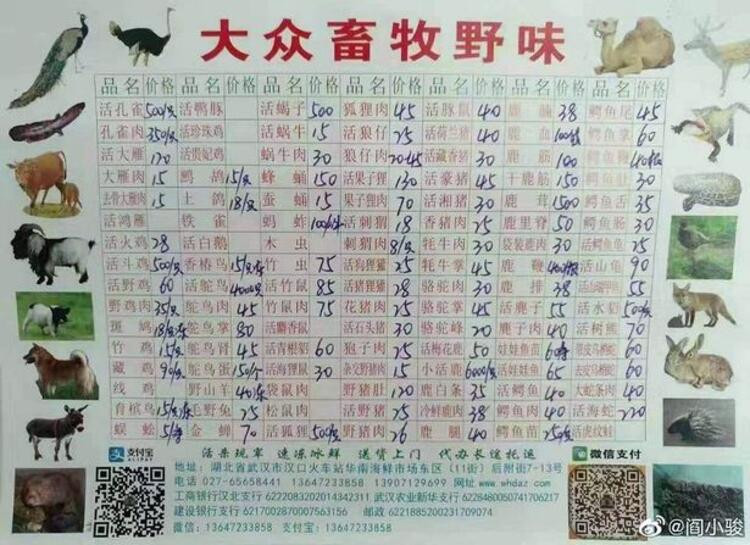 大众畜牧野味
品名 价格 品名 价格 品名 价格 品名 价格 品名 价格 品名 价格 品名 价格
活孔雀 500/只 活鸭豚 活蝎子 500 狐狸肉 45 活豚鼠 40 鹿腩 38 鳄鱼尾 45
孔雀肉 350/只 活珍珠鸡 蜗牛生 15 活狼仔 25 活荷兰猪 40 鹿血 鳄鱼掌 60
活大雁 120 活贵妃鸡 蜗牛肉 30 狼仔肉 20-45 活藏香猪 30 鹿筋 100 鳄鱼鞭
大雁肉 15 鹧鸪 15/只 蜂蛹 150 活果子狸 130 活豪猪 45 干鹿筋 150 鳄鱼肚 30
去骨大雁肉 15 土鸽 18/只 蚕蛹 15 果子狸肉 70 活湘猪 30 鹿茸 1500 鳄鱼舌 35
活鸿雁 铁雀 蚂蚱 活刺猬 18 香猪肉 25 鹿里脊 50 鳄鱼肠 30
活火鸡 28 活白鹅 木虫 刺猬肉 8/只 牦牛肉 40 袋装鹿肉 30 活鳄鱼龟 25
活斗鸡 500/只 香椿鸟 竹虫 75 活狗狸獾 25 牦牛掌 45 鹿鞭 活山龟 90
活野鸡 60 活鸵鸟 4000/只 活竹鼠 85 活猪狸獾 28 骆驼肉 30 鹿排 38 活鳄鱼 55
野鸡肉 35/只 鸵鸟肉 45 竹鼠肉 75 花猪肉 25 骆驼掌 45 活鹿子 55 活水貂 500/只
斑鸠 鸵鸟掌 80 活麝香鼠 活石头猪 30 骆驼峰 20 鹿子肉 40 活树熊 70
竹鸡 15/只 鸵鸟肾 45 活青根貂 60 狍子肉 25 活梅花鹿 50 娃娃鱼苗 带皮乌梢蛇 60
藏鸡 90/只 鸵鸟蛋 活海狸鼠 30 杂交野猪肉 15 小活鹿 6000/只 娃娃鱼 65 去皮乌梢蛇 60
线鸡 野山羊 袋鼠肉 野猪肚 120 鹿白条 35 活鳄鱼 40 大蛇条肉 40
育槟鸟 活野兔 25 松鼠肉 活野猪 25 冷鲜鹿肉 38 鳄鱼肉 40 活海蛇 220
蜈蚣 金蝉 70 活狐狸 500/只 野猪肉 26 鹿腿 40 鳄鱼苗 250/只 活虎纹蛙
支付宝
ALIPAY
活杀现宰 速冻冰鲜 送货上门 代办长途托运
微信支付
地址：湖北省武汉市汉口火车站华南海鲜市场东区（11街）后附街7-13号
电话：027-65658441 13647233858 13907129699 网址：www.whdaz.com
工商银行汉北支行 6222083202014342311 武汉农业新华支行 6228480050741706217
建设银行支行 6217002870007300225 邮政 6221885200231709074
微信：13647233858 支付宝：13647233858
@阎小骏